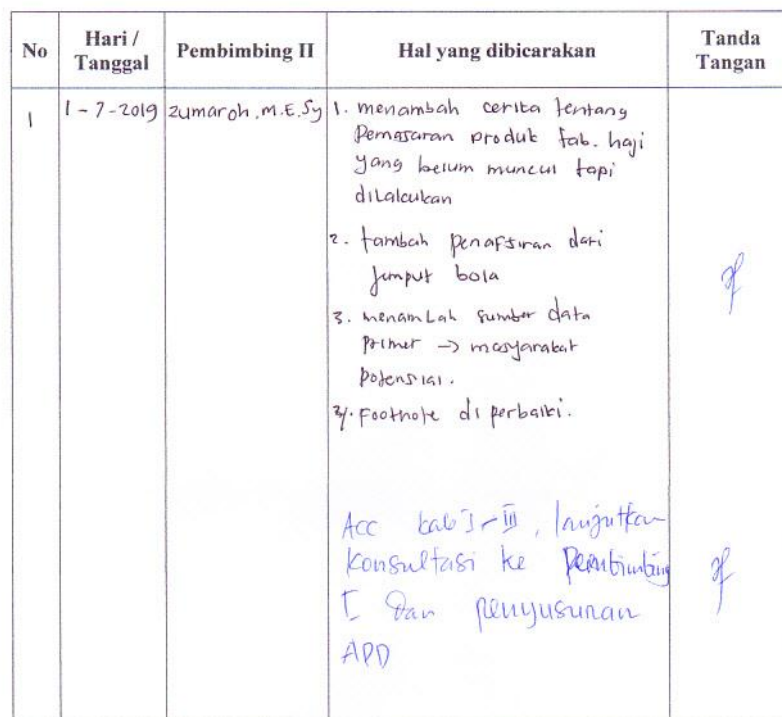 No
Hari /
Tanggal
Pembimbing II
Hal yang dibicarakan
Tanda
Tangan
1
1-7-2019
Zumaroh, M.E.Sy
1. menambah cerita tentang
Pemasaran produk tab. haji
yang belum muncul tapi
dilakukan
2. tambah penafsiran dari
jemput bola
3. menambah sumber data
primer → masyarakat
potensial.
4. Footnote diperbaiki.
Acc bab I-III, lanjutkan
konsultasi ke Pembimbing
I dan penyusunan
APD